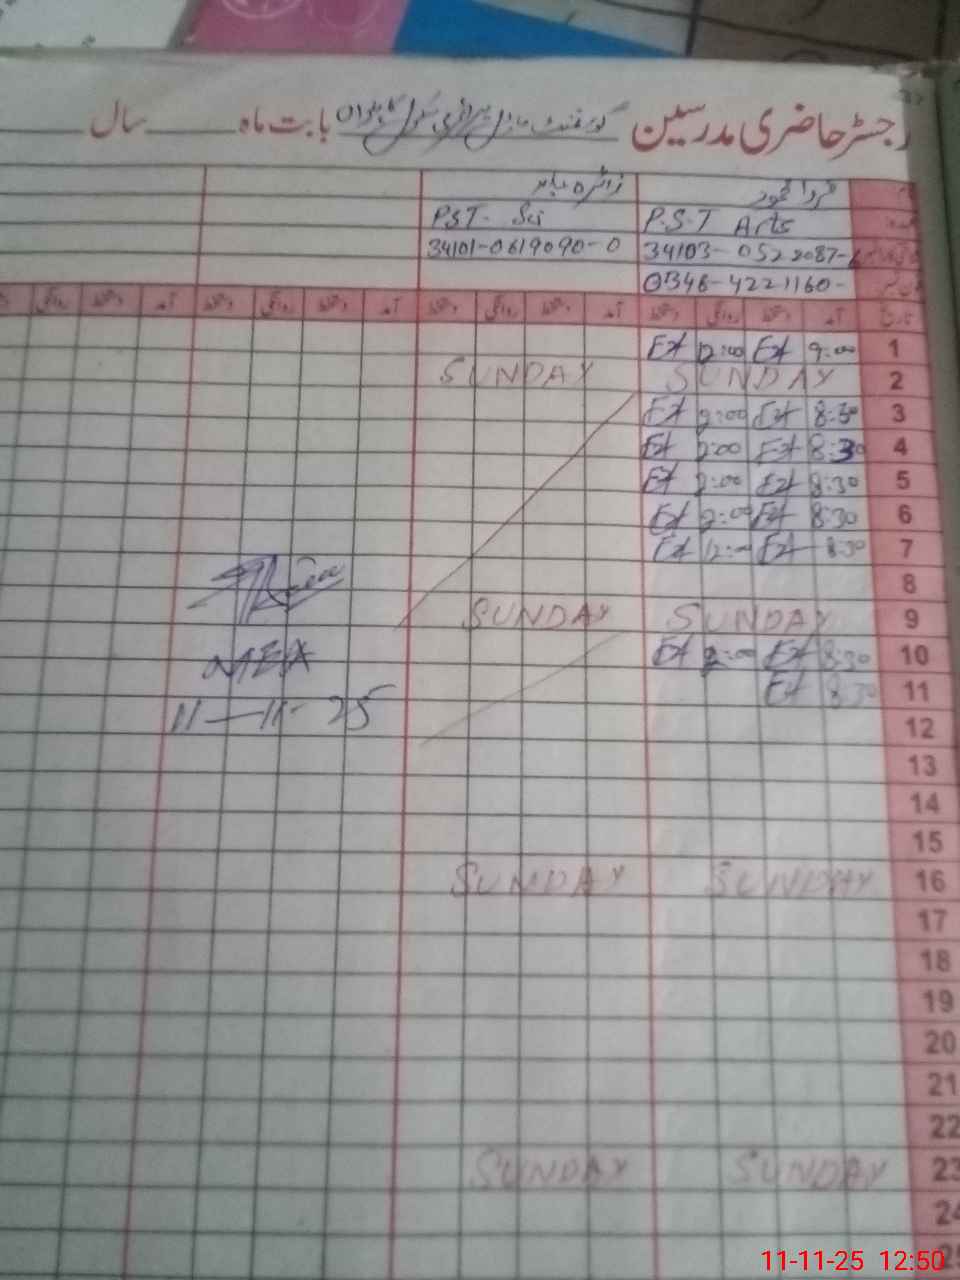 رجسٹر حاضری مدرسین گورنمنٹ ماڈل پرائمری سکول بابت ماہ سال
زائرہ بابر
P.S.T Arts PST- Sci
34101-0619090-0
0346-4221160-
تاریخ آمد دستخط روانگی دستخط آمد دستخط روانگی دستخط آمد دستخط روانگی دستخط آمد دستخط روانگی
1 9:00 12:00
2 SUNDAY SUNDAY
3 8:30 2:00
4 8:30 2:00
5 8:30 2:00
6 8:30 2:00
7 8:30 12:00
8
9 SUNDAY SUNDAY
10 8:30 2:00
MEA
11 8:30
11-11-25
12
13
14
15
16 SUNDAY SUNDAY
17
18
19
20
21
22
23 SUNDAY SUNDAY
24
25
11-11-25 12:50